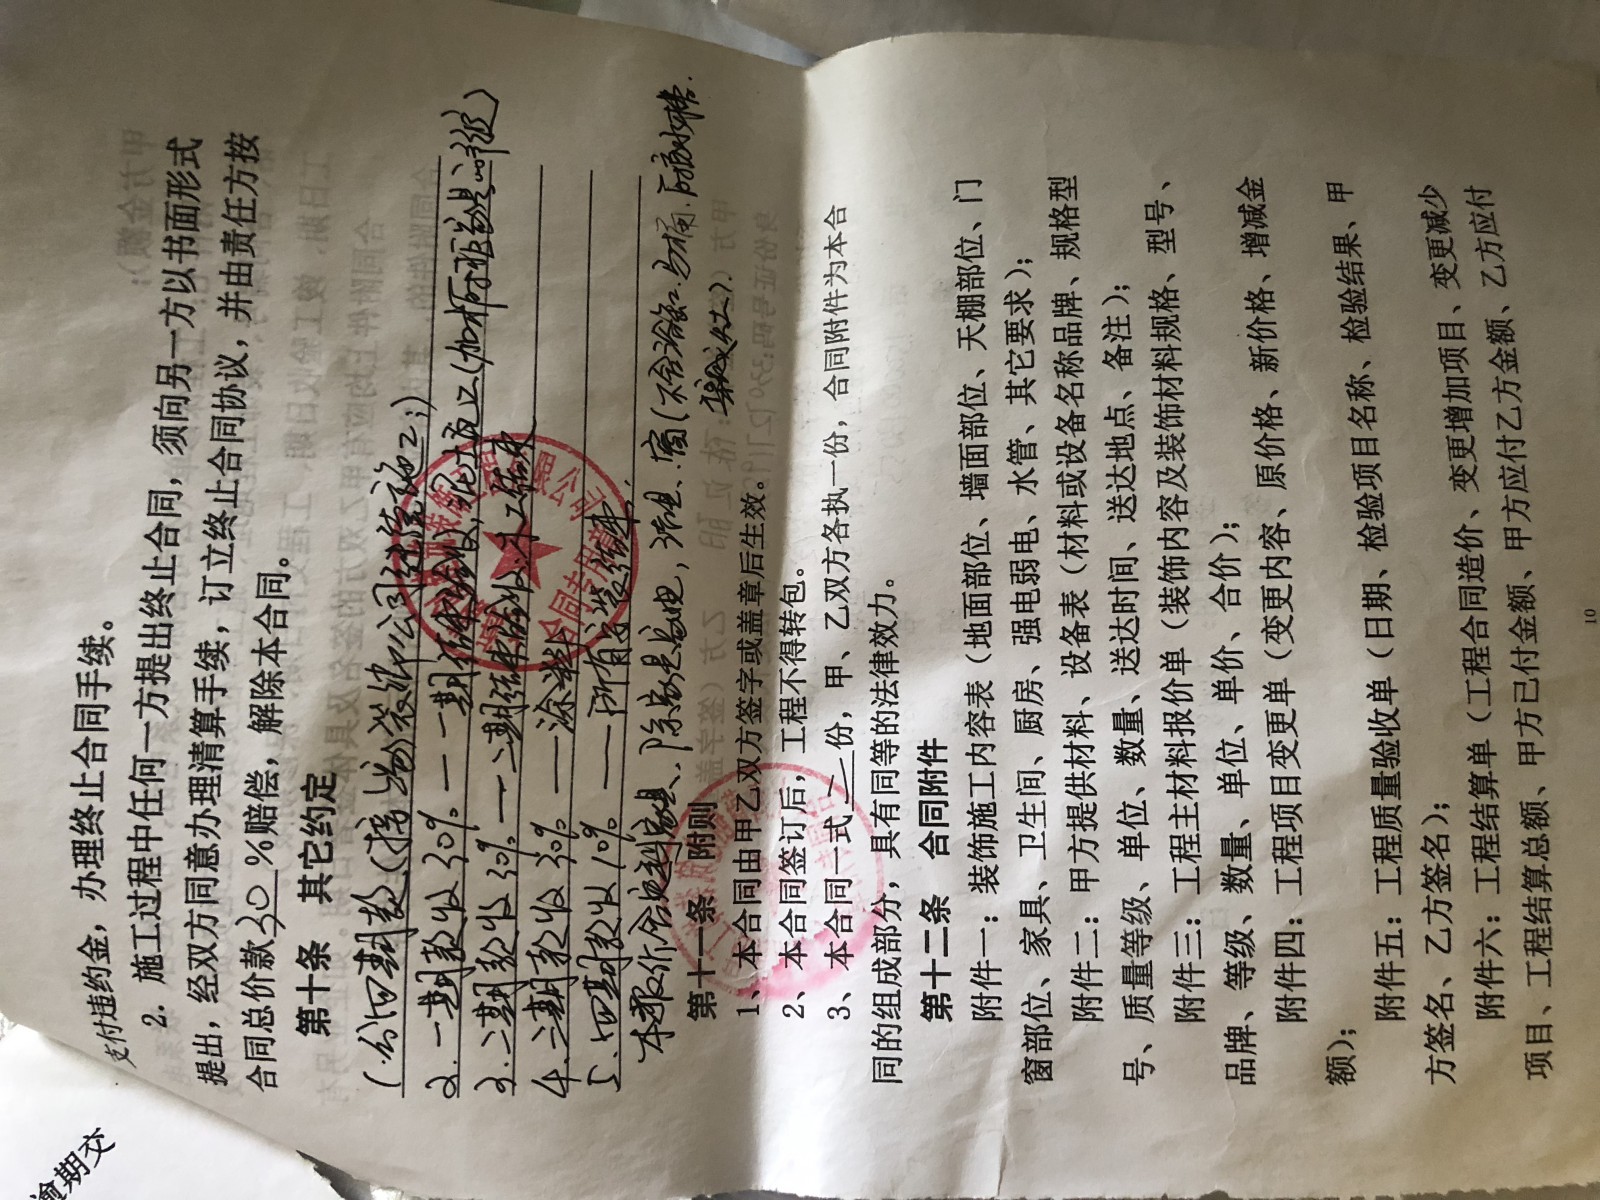 逾期交
支付违约金，办理终止合同手续。
2. 施工过程中任何一方提出终止合同，须向另一方以书面形式
提出，经双方同意办理清算手续，订立终止合同协议，并由责任方按
合同总价款30%赔偿，解除本合同。
第十条 其它约定
(分四期款(接 装饰公司 施工:)
2. 一期款收30%. 一期 泥工
3. 二期款收30%. 二期 木工结束
4. 三期款收30% — 涂料
5. 四期款收10% — 所有安装结束.
本报价含
第十一条 附则
1、本合同由甲乙双方签字或盖章后生效。
2、本合同签订后，工程不得转包。
3、本合同一式二份，甲、乙双方各执一份，合同附件为本合
同的组成部分，具有同等的法律效力。
第十二条 合同附件
附件一：装饰施工内容表（地面部位、墙面部位、天棚部位、门
窗部位、家具、卫生间、厨房、强电弱电、水管、其它要求）；
附件二：甲方提供材料、设备表（材料或设备名称品牌、规格型
号、质量等级、单位、数量、送达时间、送达地点、备注）；
附件三：工程主材料报价单（装饰内容及装饰材料规格、型号、
品牌、等级、数量、单位、单价、合价）；
附件四：工程项目变更单（变更内容、原价格、新价格、增减金
额）；
附件五：工程质量验收单（日期、检验项目名称、检验结果、甲
方签名、乙方签名）；
附件六：工程结算单（工程合同造价、变更增加项目、变更减少
项目、工程结算总额、甲方已付金额、甲方应付乙方金额、乙方应付
10
合同专用章